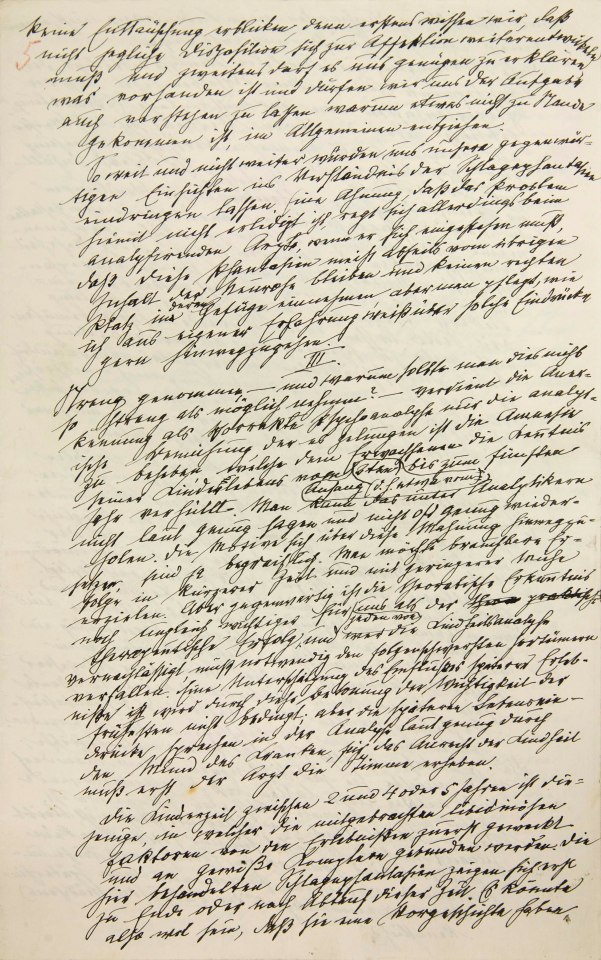 5
keine Enttäuschung erblicken, denn erstens wissen wir, daß
nicht jegliche Disposition sich zur Affektion weiterentwickeln
muß und zweitens darf es uns genügen zu erklären
was vorhanden ist und dürfen wir uns der Aufgabe
auch verstehen zu lassen warum etwas nicht zu Stande
gekommen ist, im Allgemeinen entziehen.
So weit und nicht weiter würden uns unsere gegenwär-
tigen Einsichten ins Verständnis der Schlagephantasien
eindringen lassen. Eine Ahnung, daß das Problem
hiemit nicht erledigt ist regt sich allerdings beim
analysirenden Arzte, wenn er sich eingestehen muß,
daß diese Phantasien meist abseits vom übrigen
Inhalt der Neurose bleiben und keinen rechten
Platz in deren Gefüge einnehmen aber man pflegt, wie
ich aus eigener Erfahrung weiß über solche Eindrücke
gern hinwegzugehen.
III.
Streng genommen — und warum sollte man dies nicht
so streng als möglich nehmen? — verdient die Aner-
kennung als korrekte Psychoanalyse nur die analyt-
ische Bemühung der es gelungen ist die Amnesie
zu beheben welche dem Erwachsenen die Kenntnis
seines Kinderlebens vom bis zum fünften
Anfang (d.h. etwa vom 2.)
Jahr verhüllt. Man kann das unter Analytikern
nicht laut genug sagen und nicht oft genug wieder-
holen. Die Motive sich über diese Mahnung hinwegzu-
setzen, sind begreiflich. Man möchte brauchbare Er-
folge in kürzerer Zeit und mit geringerer Mühe
erzielen. Aber gegenwärtig ist die theoretische Erkenntnis
noch ungleich wichtiger für jeden von uns als der
therapeutische Erfolg, und wer die Kindheitsanalyse
vernachlässigt, muß notwendig den folgenschwersten Irrtümern
verfallen. Eine Unterschätzung des Einflußes späterer Erleb-
nisse wird durch diese Betonung der Wichtigkeit der
frühesten nicht bedingt; aber die späteren Lebensein-
drücke sprechen in der Analyse laut genug durch
den Mund des Kranken, für das Anrecht der Kindheit
muß erst der Arzt die Stimme erheben.
Die Kinderzeit zwischen 2 und 4 oder 5 Jahren ist die-
jenige, in welcher die mitgebrachten libidinösen
Faktoren von den Erlebnissen zuerst geweckt
und an gewisse Komplexe gebunden werden. Die
hier behandelten Schlagephantasien zeigen sich erst
zu Ende oder nach Ablauf dieser Zeit. Es könnte
also wol sein, daß sie eine Vorgeschichte haben,